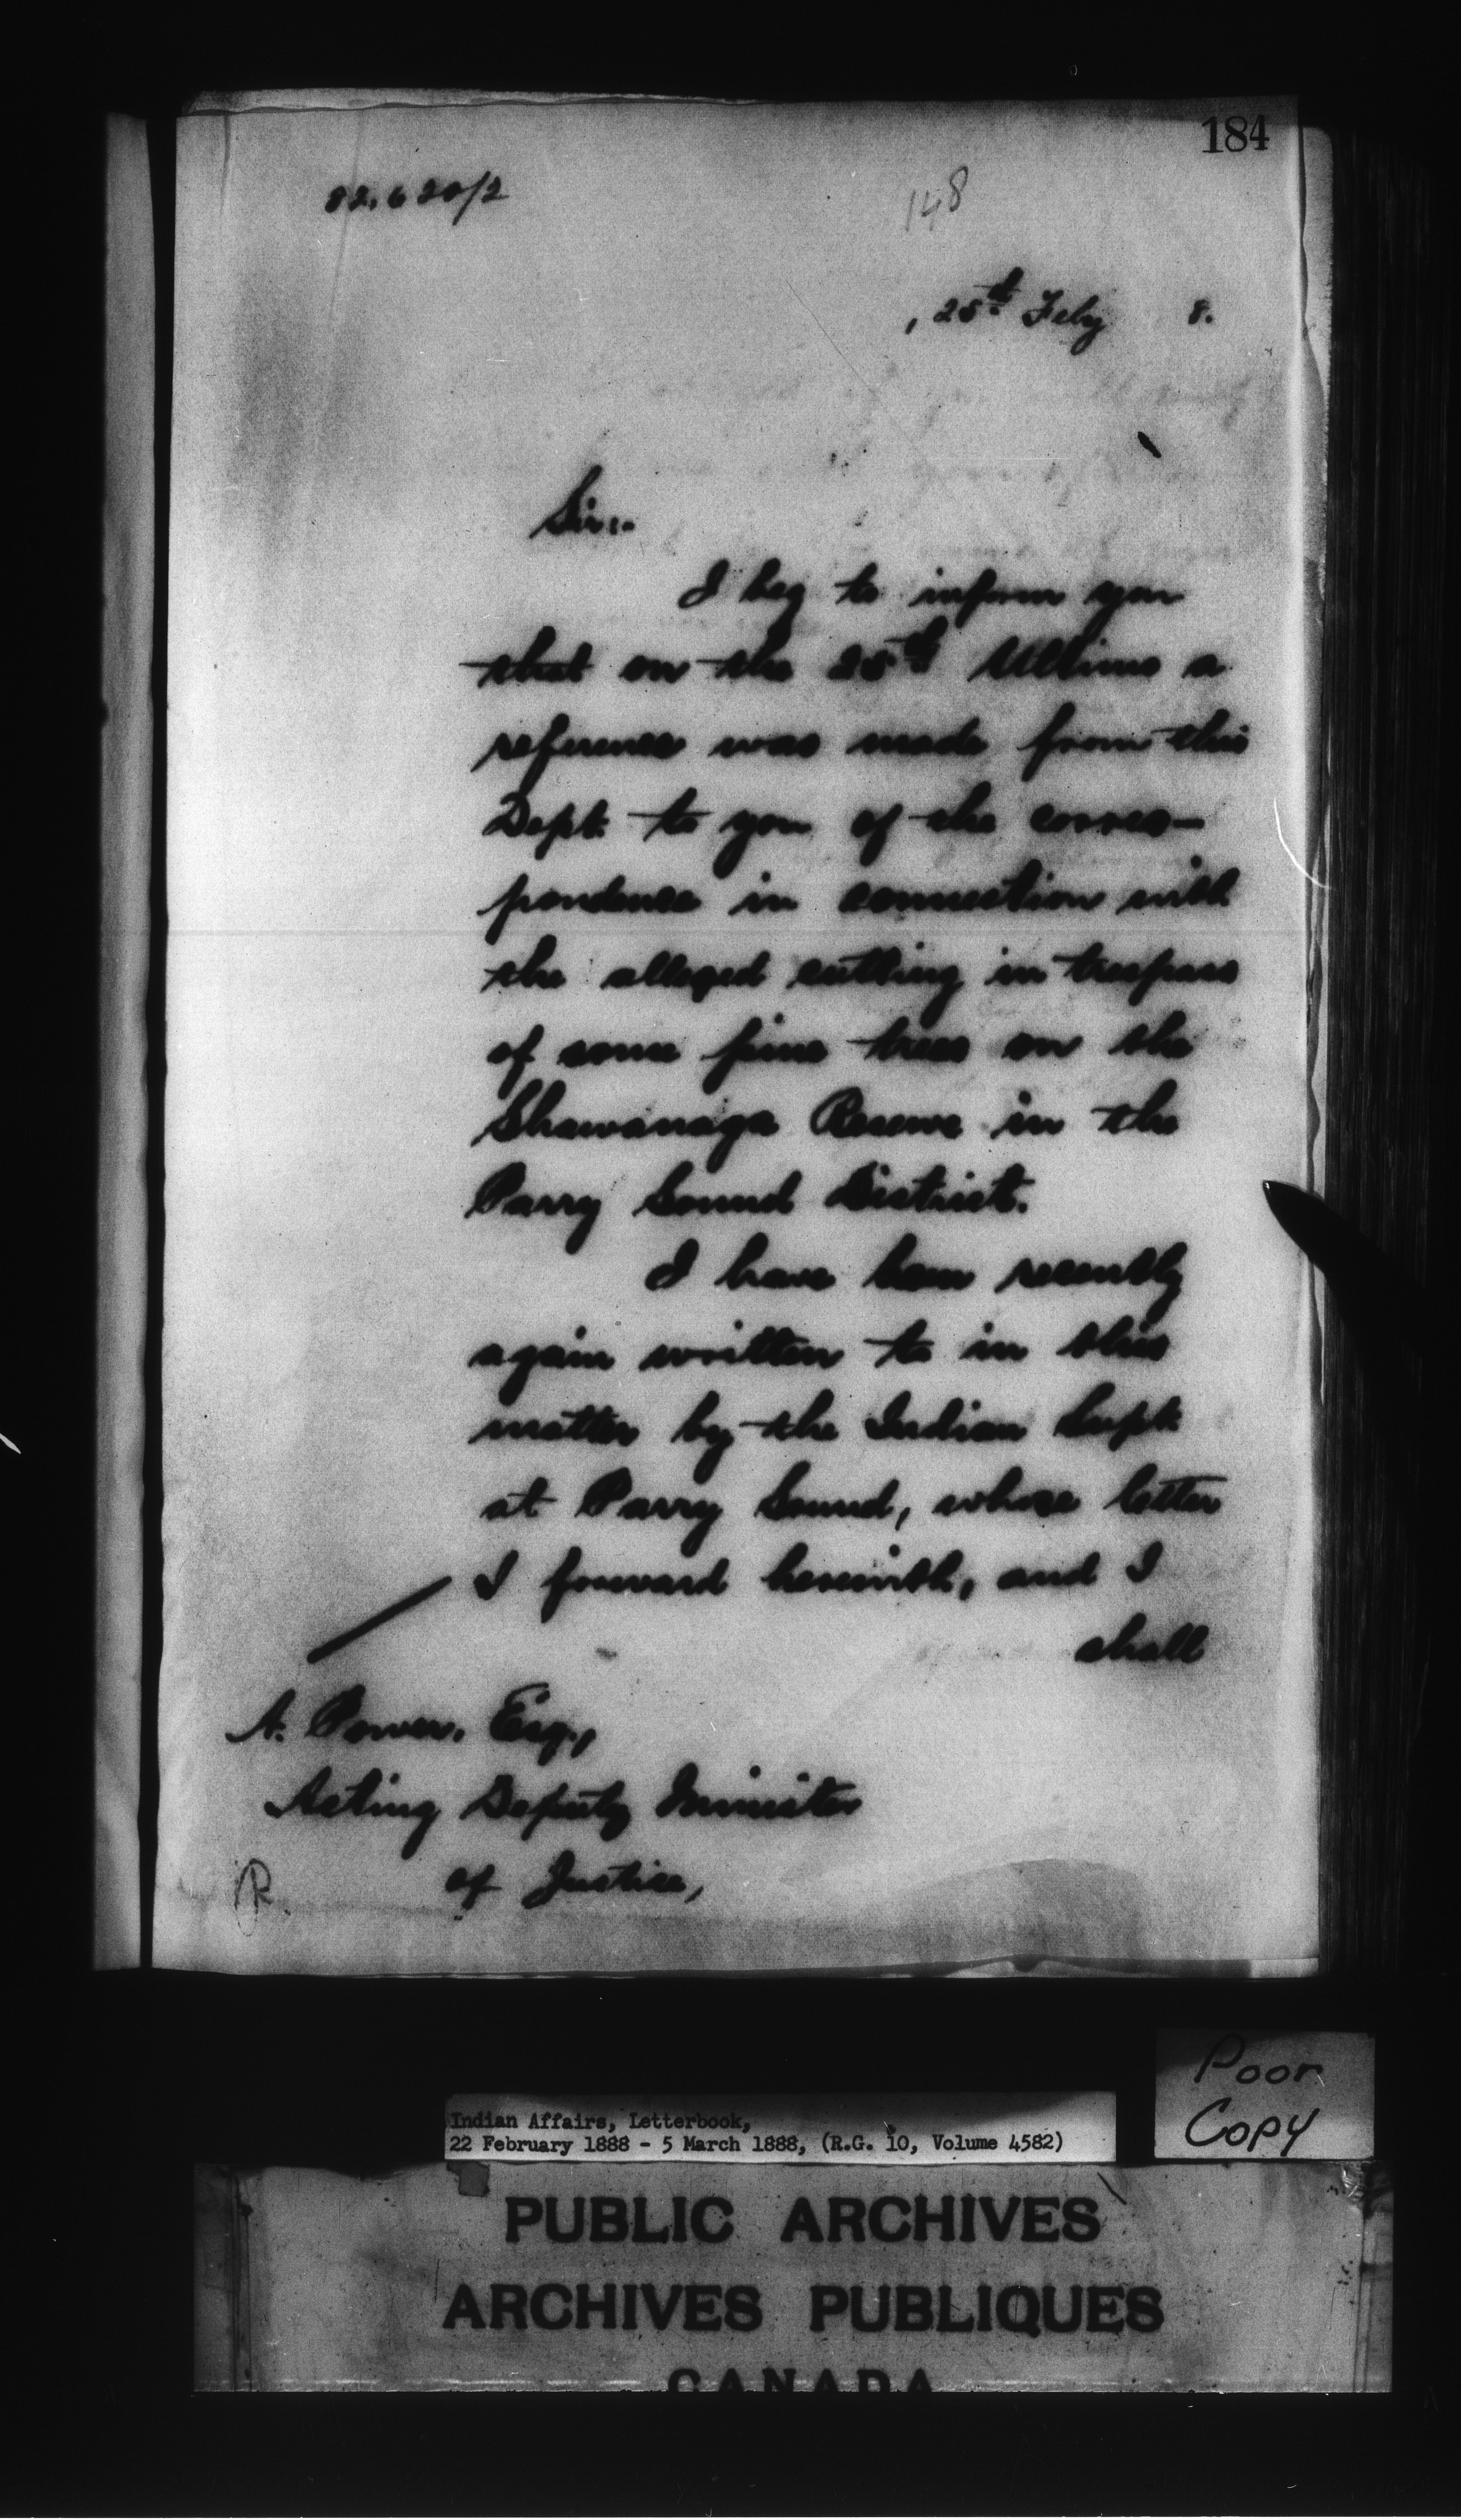 184
82.620/2
148
, 25th Feby 8.
Sir:-
I beg to inform you
that on the 25th Ultimo a
reference was made from this
Dept. to you of the corres-
pondence in connection with
the alleged cutting in trespass
of some pine trees on the
Shawanaga Reserve in the
Parry Sound District.
I have been recently
again written to in this
matter by the Indian Supt.
at Parry Sound, whose letter
I forward herewith, and I
shall
A. Power. Esq.,
Acting Deputy Minister
of Justice,
R.
Poor
Copy
Indian Affairs, Letterbook,
22 February 1888 - 5 March 1888, (R.G. 10, Volume 4582)
PUBLIC ARCHIVES
ARCHIVES PUBLIQUES
CANADA